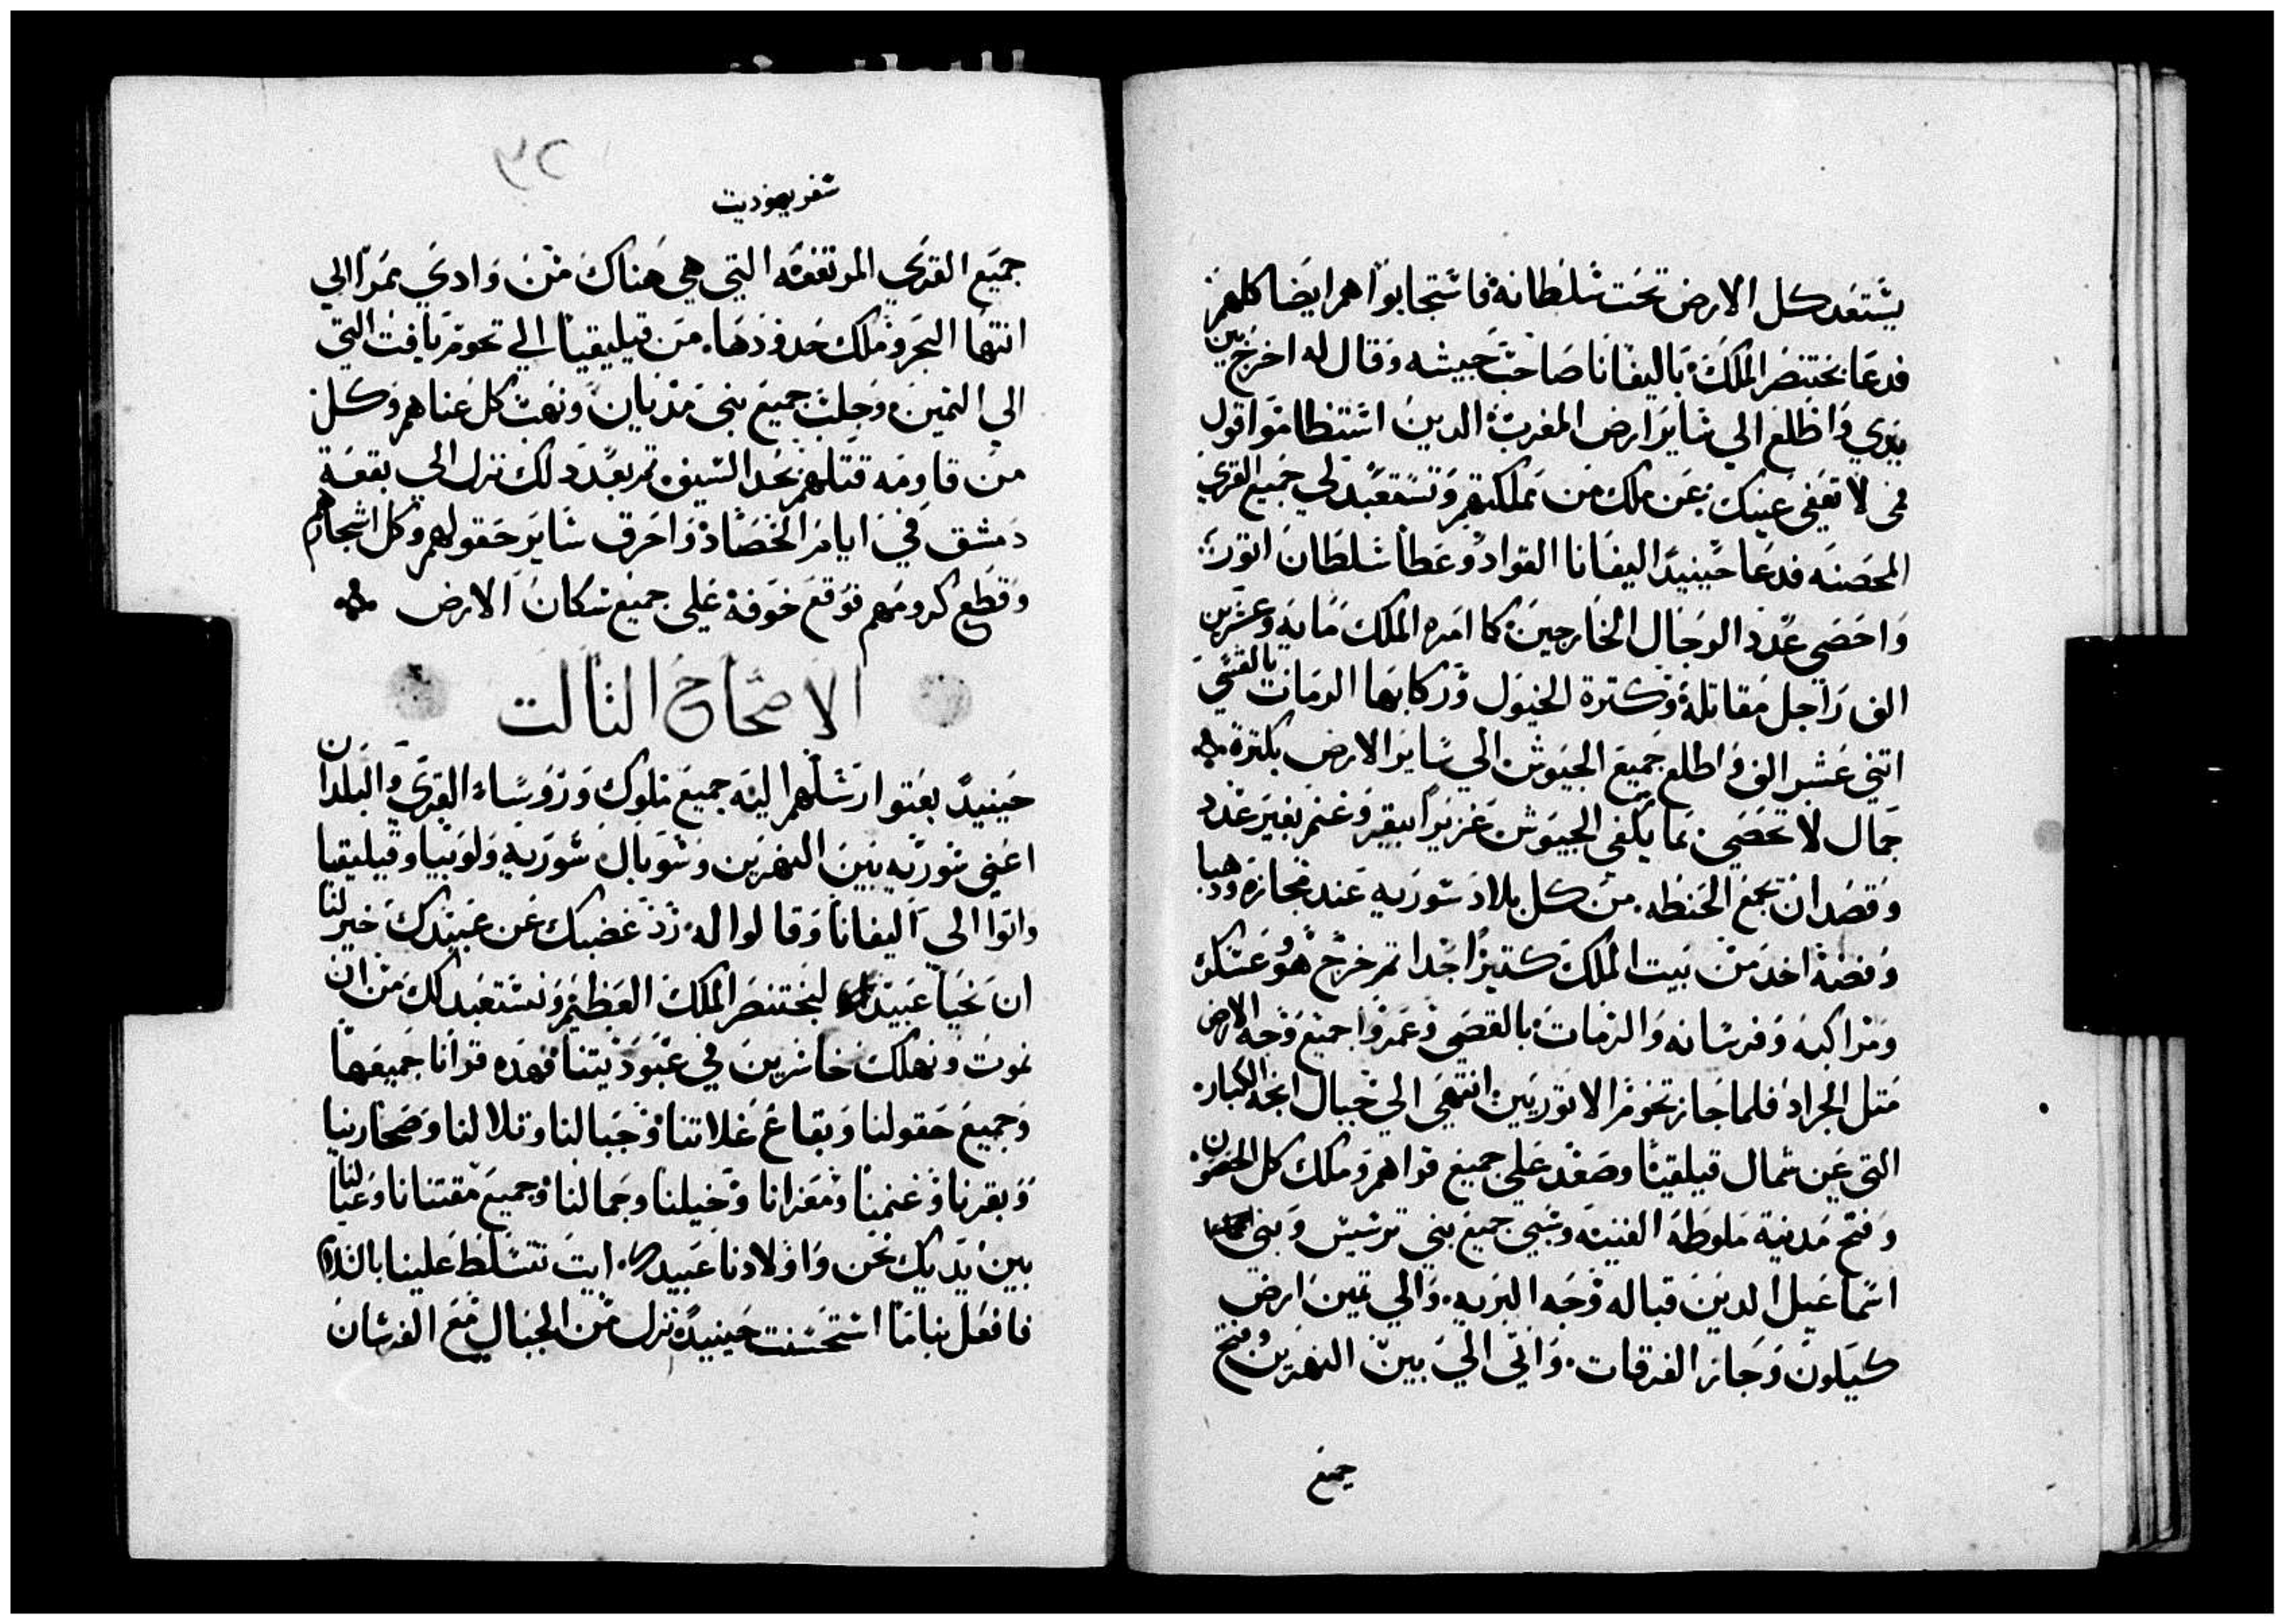 يستعبد كل الارض تحت سلطانه فاستجابوا هم ايضا كلهم
فدعا بختنصر الملك باليفانا صاحب جيشه وقال له اخرج بين
يدي واطلع الي ساير ارض المغرب الدين استنطاموا قول
فمي لا تعفي عينك عن ملك من مملكتهم وتستعبد لي جميع القري
المحصنه فدعا حينيدا اليفانا القواد وعطا سلطان اتور
واحصي عدد الرجال الخارجين كما امره الملك مايه وعشرين
الف راجل مقاتله وكترة الخيول وركابها الرمات بالقسي
اتني عشر الف واطلع جميع الجيوش الي ساير الارض بكترة
جمال لا تحصي بما يكفي الجيوش غزيرا بقر وغنم بغير عدد
وقصد ان تجمع الحنطه من كل بلاد سوريه عند مجازه ودهبا
وفضة اخد من بيت الملك كتيرا جدا تم خرج هو وعسكره
ومراكبه وفرسانه والرمات بالقصي وغمروا جميع وجه الارض
متل الجراد فلما جاز تخوم الاتوريين انتهي الي جبال انجه الكبار
التي عن شمال قيلقيا وصعد علي جميع قراهم وملك كل الحصون
وفتح مدينة ملوطة الغنيه وسبي جميع بني ترسيس وبني
اسماعيل الدين قباله وجه البريه والي يمين ارض
كيلون وجاز الفرقات واتي الي بين النهرين وفتح
جميع
٣٢
سفر يهوديت
جميع القري المرتفعه التي هي هناك من وادي ممرا الي
انتها البحر وملك حدودها من قيليقيا الي تخوم يافت التي
الي اليمين وجلب جميع بني مديان ونهب كل غناهم وكل
من قاومه قتلهم بحد السيف تم بعد دلك نزل الي بقعة
دمشق في ايام الحصاد واحرق ساير حقولهم وكل اشجارهم
وقطع كرومهم فوقع خوفه علي جميع سكان الارض
الاصحاح التالت
حينيد بعتوا رسلهم اليه جميع ملوك وروساء القري والبلدان
اعني سوريه بين النهرين وسوبال سوريه ولوبيا وقيليقيا
واتوا الي اليفانا وقالوا له رد غضبك عن عبيدك خير لنا
ان نحيا عبيدا لبختنصر الملك العظيم ونستعبد لك من ان
نموت ونهلك خاسرين في عبوديتنا فهده قرانا جميعها
وجميع حقولنا وبقاع غلاتنا وجبالنا وتلالنا وصحارينا
وبقرنا وغنمنا ومعزانا وخيلنا وجمالنا وجميع مقتنانا وعيالنا
بين يديك نحن واولادنا عبيدك ايت تتسلط علينا بالسلام
فافعل بنا ما استحسنت حينيد نزل من الجبال مع الفرسان